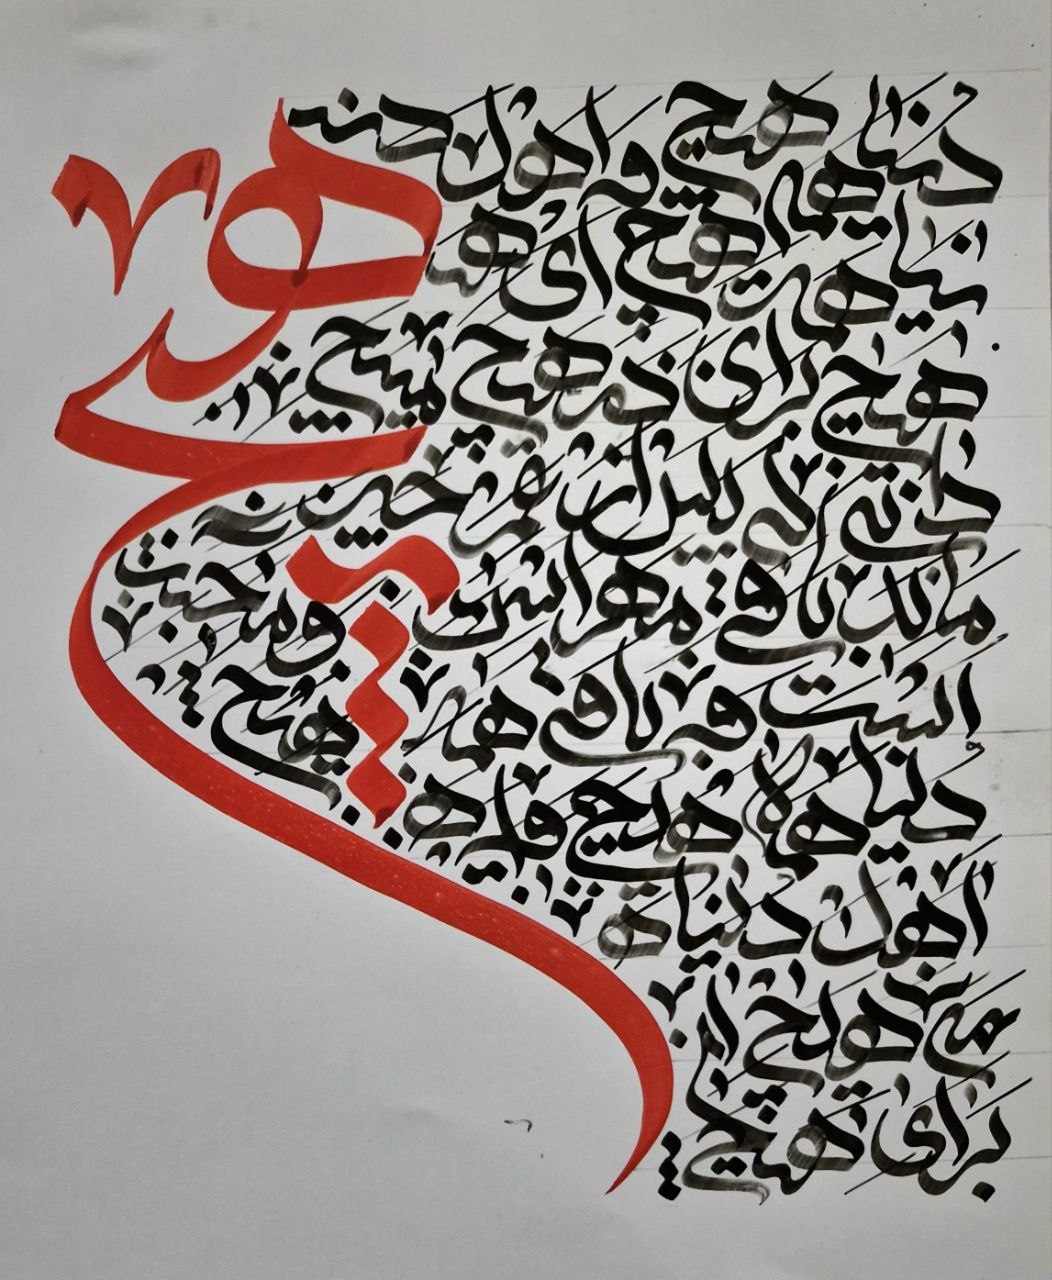 دنیا همه هیچ و اهل د
نیا همه هیچ ای
هیچ برای هیچ مپیچ
دانی که پس از عمر چه
ماند باقی مهر است و محبت
است و باقی همه هیچ
دنیا همه هیچ و
اهل دنیا ه
مه هیچ ای
برای هیچ
هیچ